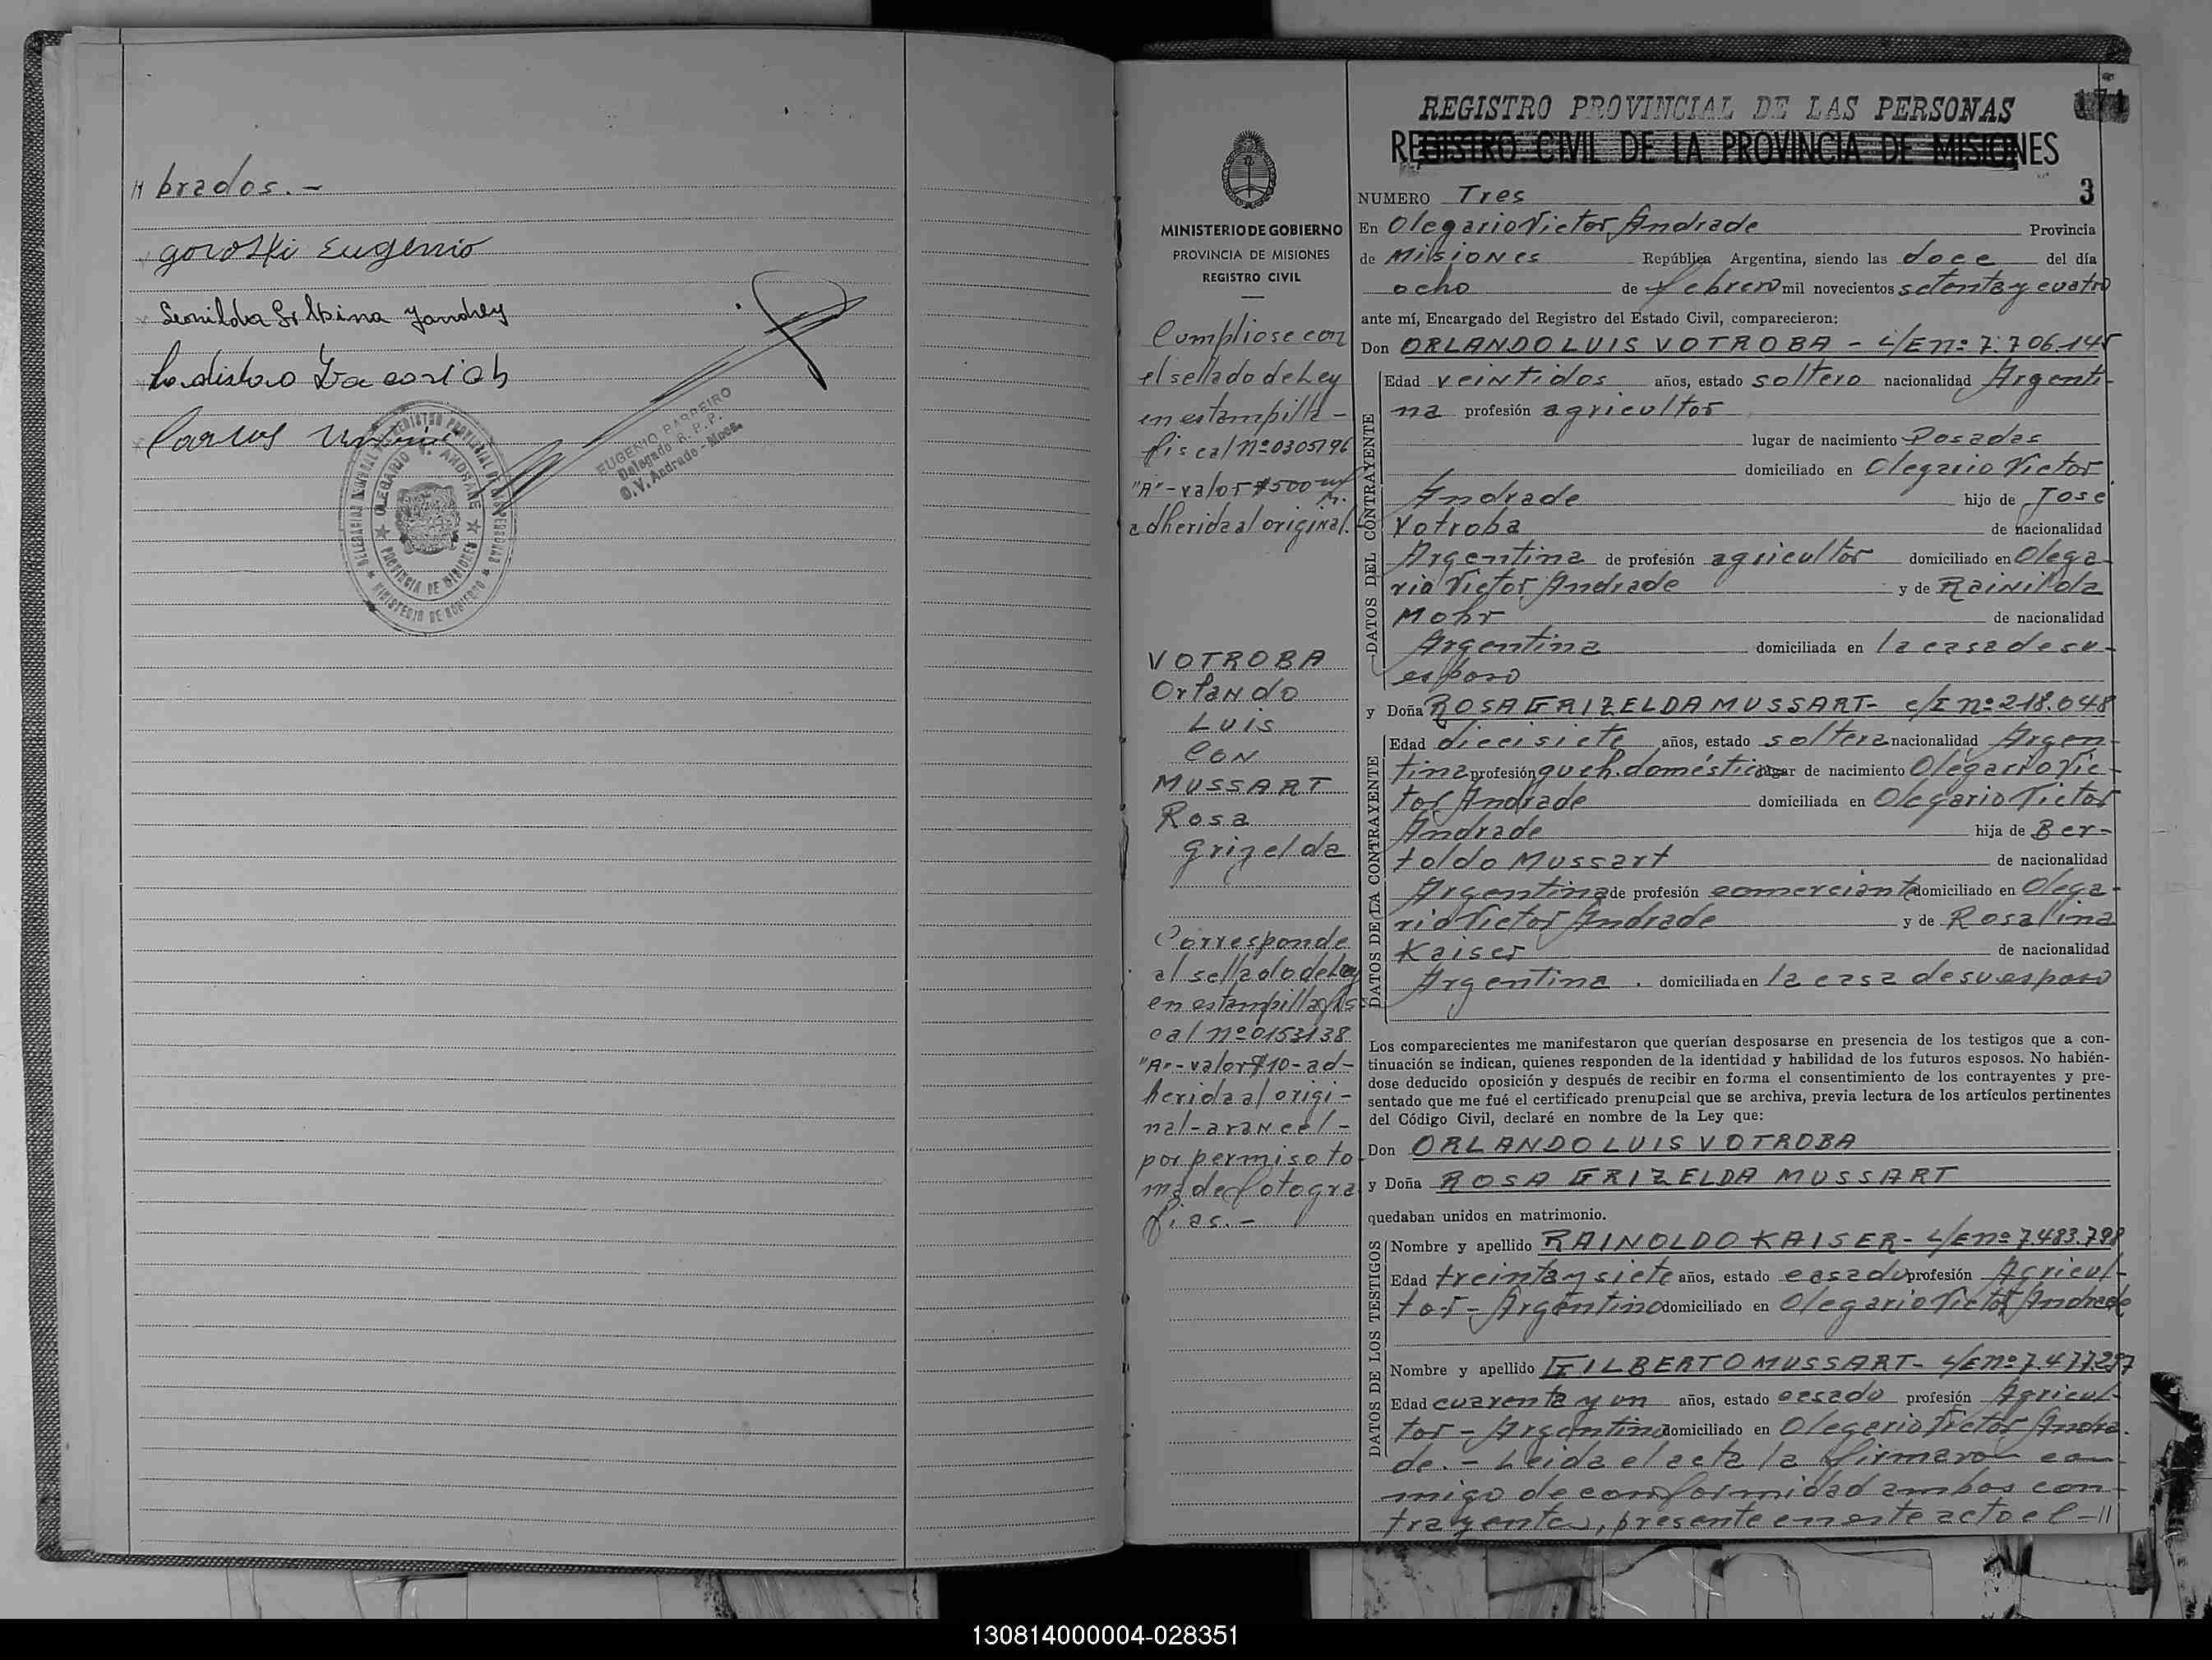 " brados.-
goroski Eugenio
Ladislao
Carlos
REGISTRO PROVINCIAL
OLEGARIO V. ANDRADE
PROVINCIA DE MISIONES
MINISTERIO DE GOBIERNO
EUGENIO BARREIRO
Delegado R. P. P.
O. V. Andrade - Mnes.
MINISTERIO DE GOBIERNO
PROVINCIA DE MISIONES
REGISTRO CIVIL
Cumpliose con
el sellado de Ley
en estampilla-
fiscal nº 0305196
"A"-valor $500 m/
n.
adherida al original.
VOTROBA
Orlando
Luis
CON
MUSSART
Rosa
Grizelda
Corresponde
al sellado de Ley
en estampilla fis
cal nº 0153138
"A"-valor $10-ad-
herida al origi-
nal-arancel-
por permiso to
ma de fotogra
fias.-
REGISTRO PROVINCIAL DE LAS PERSONAS
171
REGISTRO CIVIL DE LA PROVINCIA DE MISIONES
NUMERO Tres 3
En Olegario Victor Andrade Provincia
de Misiones República Argentina, siendo las doce del día
ocho de febrero mil novecientos setenta y cuatro
ante mí, Encargado del Registro del Estado Civil, comparecieron:
Don ORLANDO LUIS VOTROBA - L/E nº 7.706.145
DATOS DEL CONTRAYENTE
Edad veintidos años, estado soltero nacionalidad Argenti-
na profesión agricultor
lugar de nacimiento Posadas
domiciliado en Olegario Victor
Andrade hijo de José
Votroba de nacionalidad
Argentina de profesión agricultor domiciliado en Olega-
rio Victor Andrade y de Rainilda
Mohr de nacionalidad
Argentina domiciliada en la casa de su-
esposo
y Doña ROSA GRIZELDA MUSSART- c/I nº 218.048
DATOS DE LA CONTRAYENTE
Edad diecisiete años, estado soltera nacionalidad Argen-
tina profesión queh. domésticos lugar de nacimiento Olegario Vic-
tor Andrade domiciliada en Olegario Victor
Andrade hija de Ber-
toldo Mussart de nacionalidad
Argentina de profesión comerciante domiciliado en Olega-
rio Victor Andrade y de Rosalina
Kaiser de nacionalidad
Argentina . domiciliada en la casa de su esposo
Los comparecientes me manifestaron que querían desposarse en presencia de los testigos que a con-
tinuación se indican, quienes responden de la identidad y habilidad de los futuros esposos. No habién-
dose deducido oposición y después de recibir en forma el consentimiento de los contrayentes y pre-
sentado que me fué el certificado prenupcial que se archiva, previa lectura de los artículos pertinentes
del Código Civil, declaré en nombre de la Ley que:
Don ORLANDO LUIS VOTROBA
y Doña ROSA GRIZELDA MUSSART
quedaban unidos en matrimonio.
DATOS DE LOS TESTIGOS
Nombre y apellido RAINOLDO KAISER- L/E nº 7.483.798
Edad treinta y siete años, estado casado profesión Agricul-
tor - Argentino domiciliado en Olegario Victor Andrade
Nombre y apellido GILBERTO MUSSART- L/E nº 7.477.297
Edad cuarenta y un años, estado casado profesión Agricul-
tor - Argentino domiciliado en Olegario Victor Andra-
de.- Leida el acta la firmaron con-
migo de conformidad ambos con-
trayentes, presente en este acto el -"
130814000004-028351